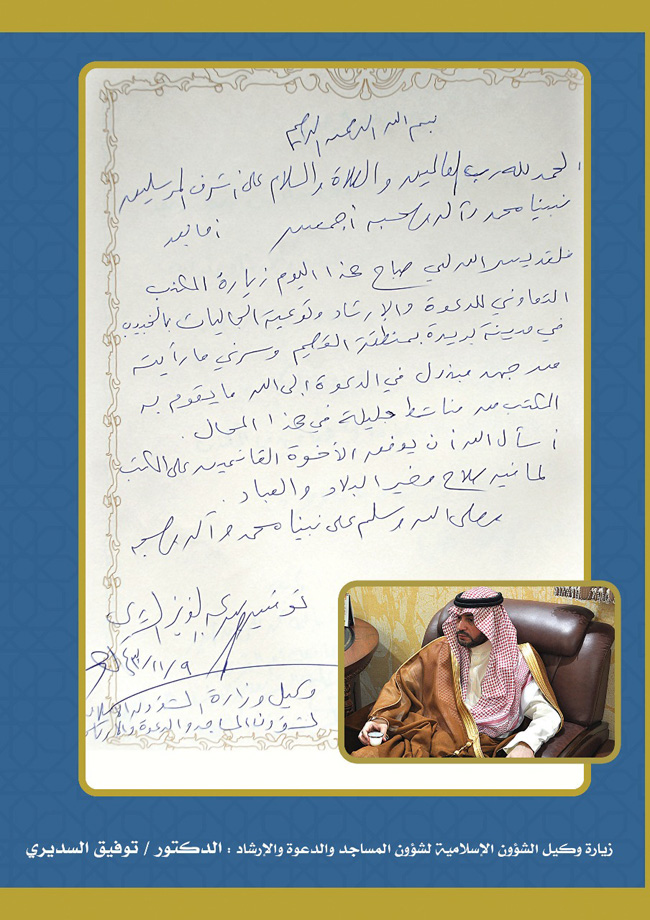 بسم الله الرحمن الرحيم
الحمد لله رب العالمين والصلاة والسلام على أشرف المرسلين
نبينا محمد وآله وصحبه أجمعين أما بعد
فلقد يسر الله لي صباح هذا اليوم زيارة المكتب
التعاوني للدعوة والإرشاد وتوعية الجاليات بالخبيب
في مدينة بريدة بمنطقة القصيم وسرني ما رأيته
من جهد مبذول في الدعوة إلى الله ما يقوم به
المكتب من مناشط جليلة في هذا المجال .
أسأل الله أن يوفق الأخوة القائمين على المكتب
لما فيه صلاح وخير البلاد والعباد .
وصلى الله وسلم على نبينا محمد وآله وصحبه
توفيق بن عبدالعزيز السديري
٩/١١/
وكيل وزارة الشؤون الإسلامية
لشؤون المساجد والدعوة والإرشاد
زيارة وكيل الشؤون الإسلامية لشؤون المساجد والدعوة والإرشاد : الدكتور / توفيق السديري